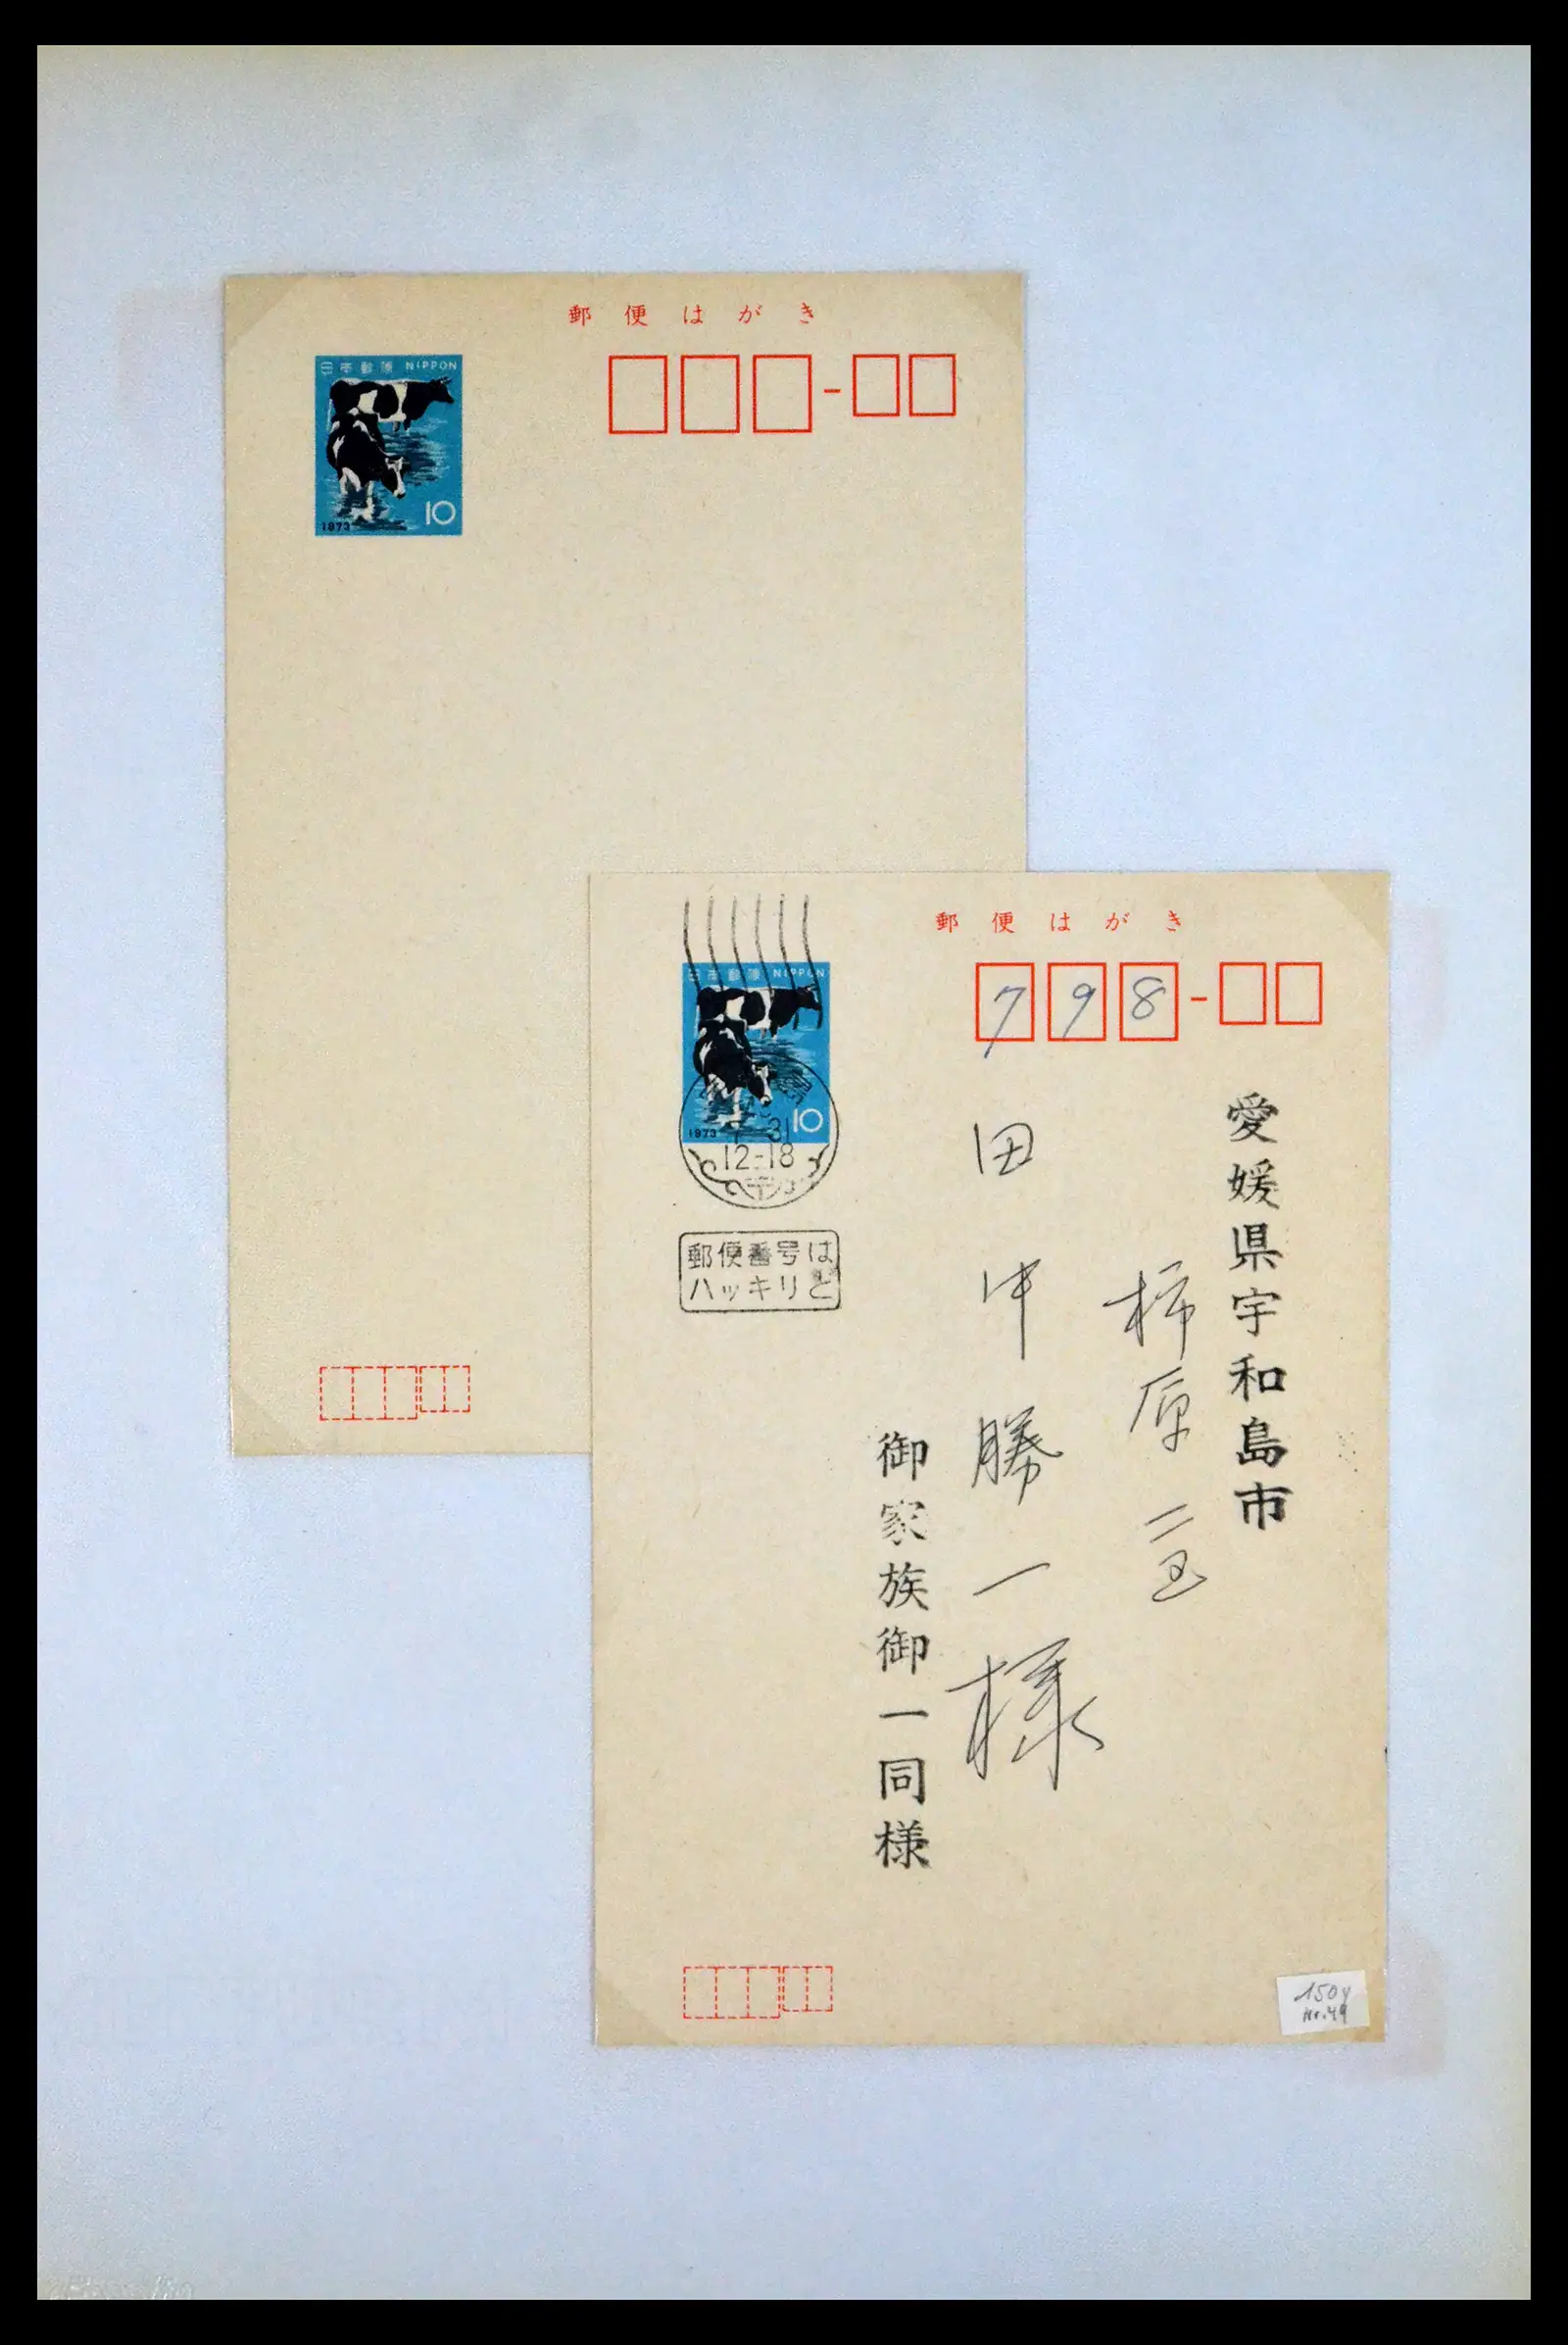 郵便はがき
日本郵便 NIPPON
1973
10
郵便はがき
日本郵便 NIPPON
1973
10
島
31
12-18
郵便番号は
ハッキリと
798
愛媛県宇和島市
柿原
田中勝一様
御家族御一同様
150y
Nr.49